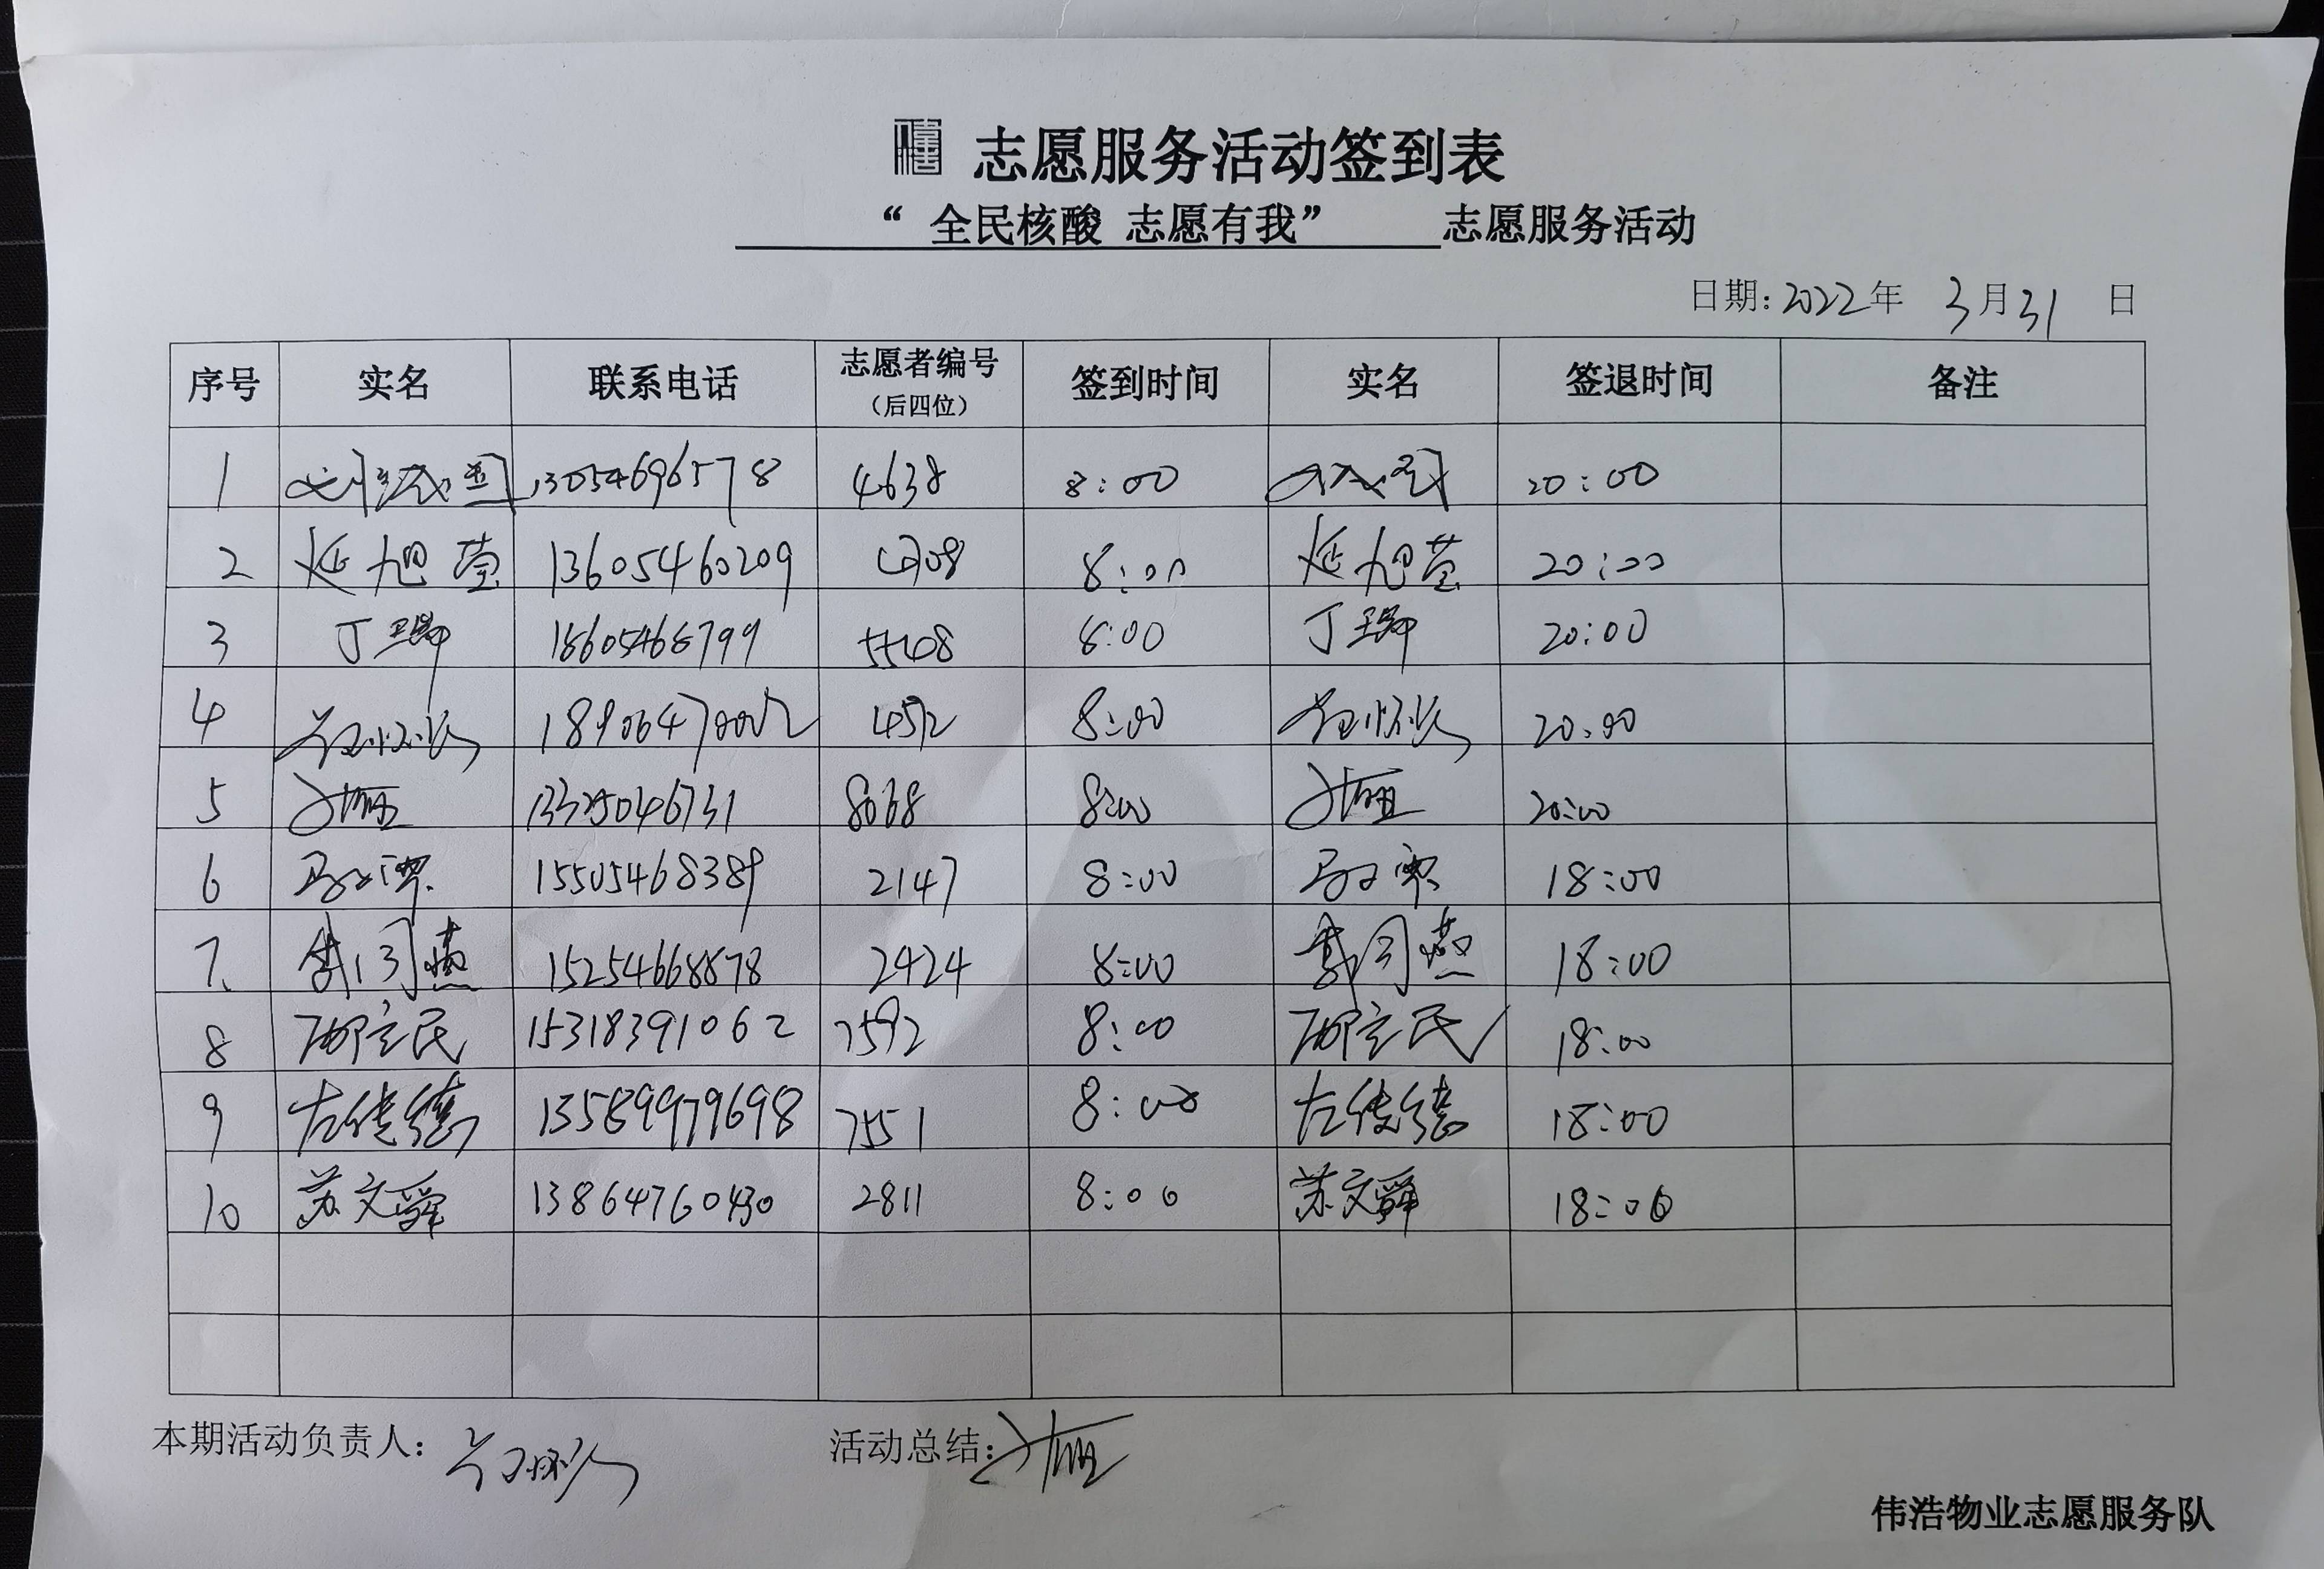 志愿服务活动签到表
“ 全民核酸 志愿有我” 志愿服务活动
日期: 2022 年 3 月 31 日
序号 实名 联系电话 志愿者编号 (后四位) 签到时间 实名 签退时间 备注
1 13054696578 4638 8:00 20:00
2 延旭莹 13605460209 8:00 延旭莹 20:00
3 丁 8:00 丁 20:00
4 8:00 20:00
5 8068 8:00 20:00
6 15505468389 2147 8:00 18:00
7. 燕 15254668878 2424 8:00 燕 18:00
8 邴立民 15318391062 7592 8:00 邴立民 18:00
9 左传德 13589979698 7551 8:00 左传德 18:00
10 苏文舜 13864760430 2811 8:00 苏文舜 18:00
本期活动负责人: 活动总结:
伟浩物业志愿服务队